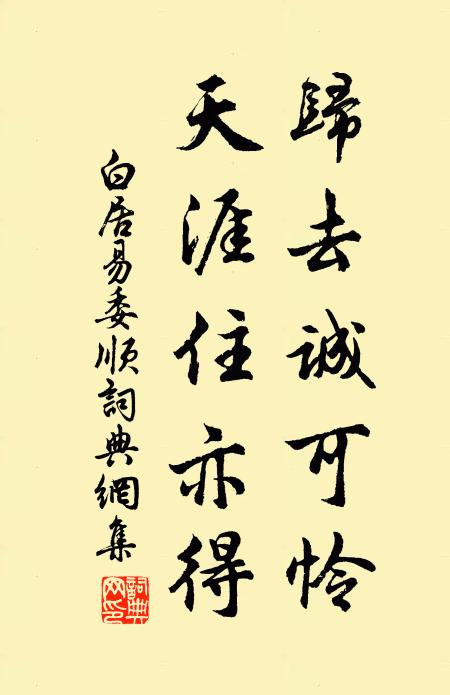 歸去誠可怜
天涯住亦得
白居易委順詞典網集
詞典网印